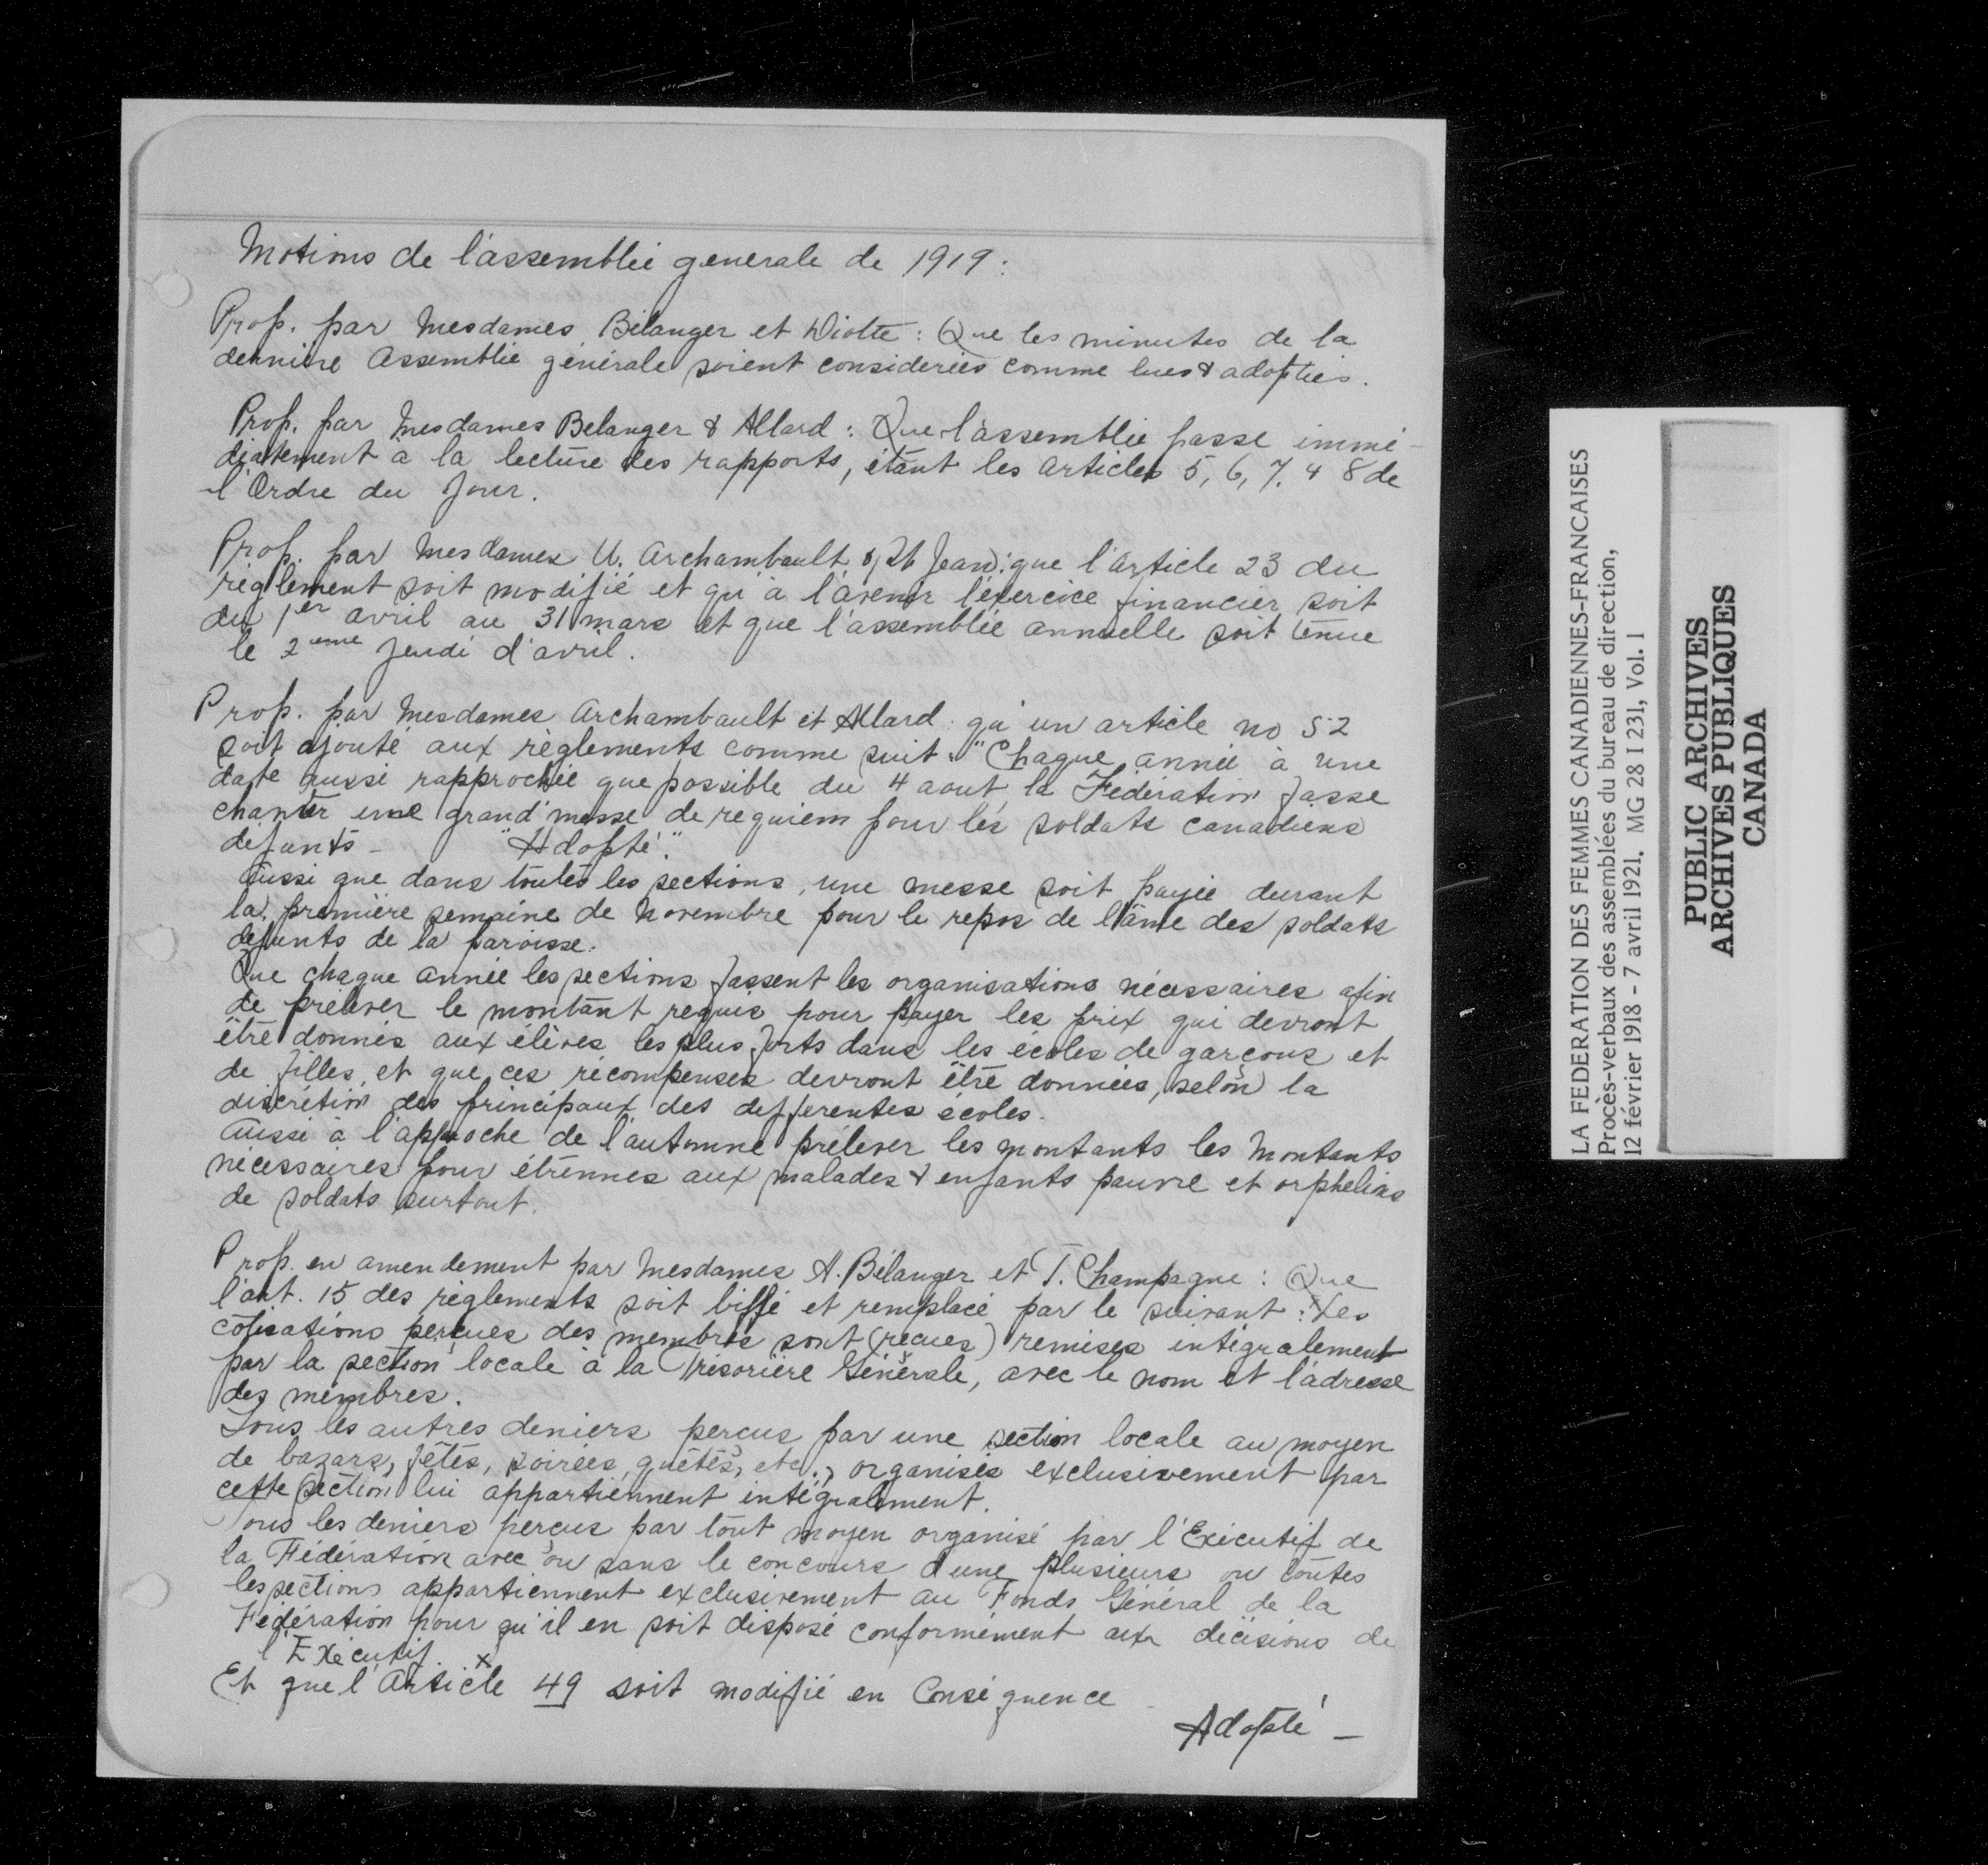 Motions de l'assemblée generale de 1919:
Prop. par Mesdames Bélanger et Diotte: Que les minutes de la
dernière Assemblée générale soient considerées comme lues & adoptées.
Prop. par Mesdames Belanger & Allard: Que l'assemblée passe immé-
diatement à la lecture des rapports, étant les Articles 5, 6, 7, & 8 de
l'Ordre du Jour.
Prop. par Mesdames U. Archambault & St Jean: que l'Article 23 du
règlement soit modifié et qu'à l'avenir l'éxercice financier soit
du 1er avril au 31 mars et que l'assemblée annuelle soit tenue
le 2ème Jeudi d'avril.
Prop. par Mesdames Archambault et Allard qu'un article no 52
soit ajouté aux règlements comme suit: "Chaque année à une
date aussi rapprochée que possible du 4 aout la Fédération fasse
chanter une grand'messe de requiem pour les soldats canadiens
défunts - "Adopté".
Aussi que dans toutes les sections, une messe soit payée durant
la première semaine de Novembre pour le repos de l'âme des soldats
défunts de la paroisse.
Que chaque année les sections fassent les organisations nécessaires afin
de prélever le montant requis pour payer les prix qui devront
être donnés aux élèves les plus forts dans les écoles de garçons et
de filles, et que ces récompenses devront être données, selon la
discretion des principaux des defferentes écoles.
Aussi a l'approche de l'automne prélever les montants les montants
nécessaires pour étrennes aux malades & enfants pauvre et orphelins
de soldats surtout.
Prop. en amendement par Mesdames A. Bélanger et T. Champagne: Que
l'art. 15 des règlements soit biffé et remplacé par le suivant: Les
cotisations perçues des membres sont (reçues) remises intégralement
par la section locale à la Trésorière Générale, avec le nom et l'adresse
des membres.
Tous les autres deniers perçus par une section locale au moyen
de bazars, fêtes, soirées, quêtes, etc., organisés exclusivement par
cette section lui appartiennent intégralement.
Tous les deniers perçus par tout moyen organisé par l'Exécutif de
la Fédération avec ou sans le concours d'une plusieurs ou toutes
les sections appartiennent exclusivement au Fonds Général de la
Fédération pour qu'il en soit disposé conformément aux décisions de
l'Exécutif. x
Et que l'Article 49 soit modifié en Conséquence
Adopté -
LA FEDERATION DES FEMMES CANADIENNES-FRANCAISES
Procès-verbaux des assemblées du bureau de direction,
12 février 1918 - 7 avril 1921. MG 28 I 231, Vol. 1
PUBLIC ARCHIVES
ARCHIVES PUBLIQUES
CANADA